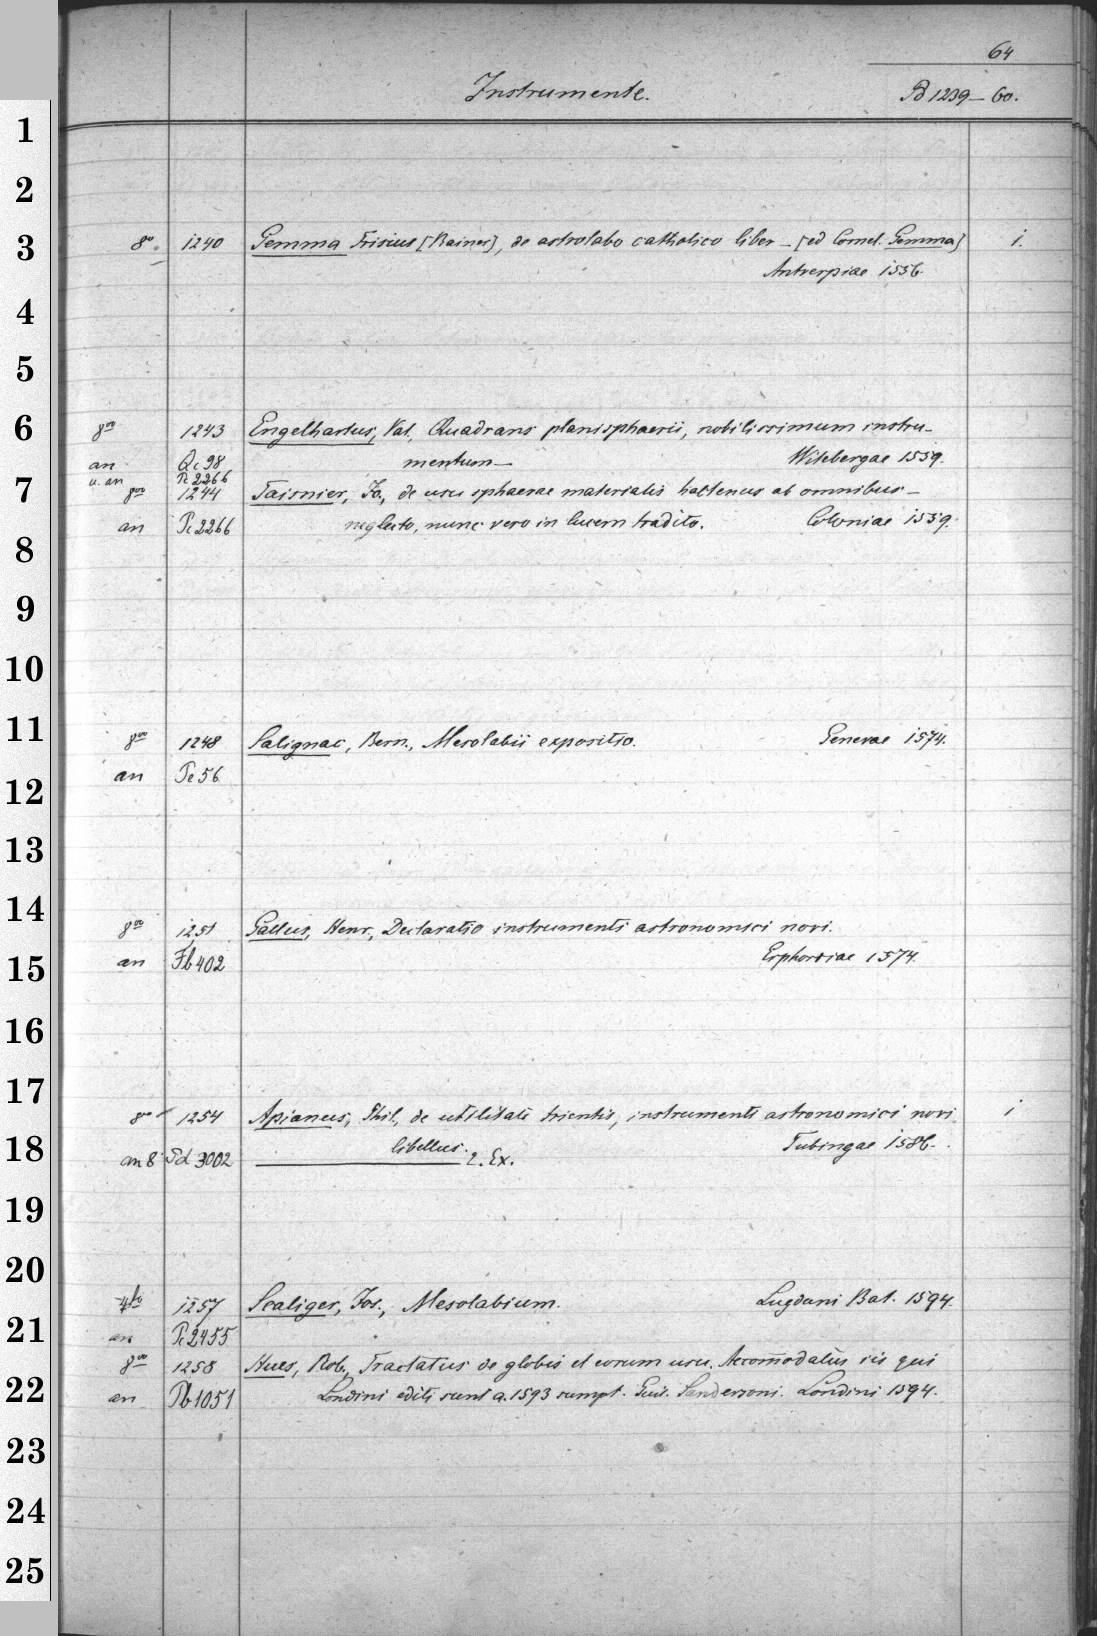 64
Instrumente.
B 1239 – 60.
1
2
3
8o. 1240 Gemma Frisius [Rainer], de astrolabo catholico liber – [ed Cornel. Gemma] i.
Antverpiae 1556.
4
5
6
8vo 1243 Engelhartus, Val. Quadrans planisphaerii, nobilissimum instru-
an Qc 98 mentum – Witebergae 1559.
u. an Pc 2266
7
8vo 1244 Taisnier, Jo., de usu sphaerae materialis hactenus ab omnibus –
an Pc 2266 neglecto, nunc vero in lucem tradito. Coloniae 1559.
8
9
10
11
8vo 1248 Salignac, Bern., Mesolabii expositio. Genevae 1574.
an Pc 56
12
13
14
8vo 1251 Gallus, Henr., Declaratio instrumenti astronomici novi.
an Fb 402 Erphordiae 1574.
15
16
17
8vo 1254 Apianus, Phil., de utilitate trientis, instrumenti astronomici novi i
libellus. Tubingae 1586.
18
an 8o Sd 3002 2. Ex.
19
20
4to 1257 Scaliger, Jos., Mesolabium. Lugduni Bat. 1594.
21
an Pc 2455
8vo 1258 Hues, Rob., Tractatus de globis et eorum usu. Accom̄odatus iis qui
22
an Pb 1051 Londini editi sunt a. 1593 sumpt. Guil. Sandersoni. Londini 1594.
23
24
25